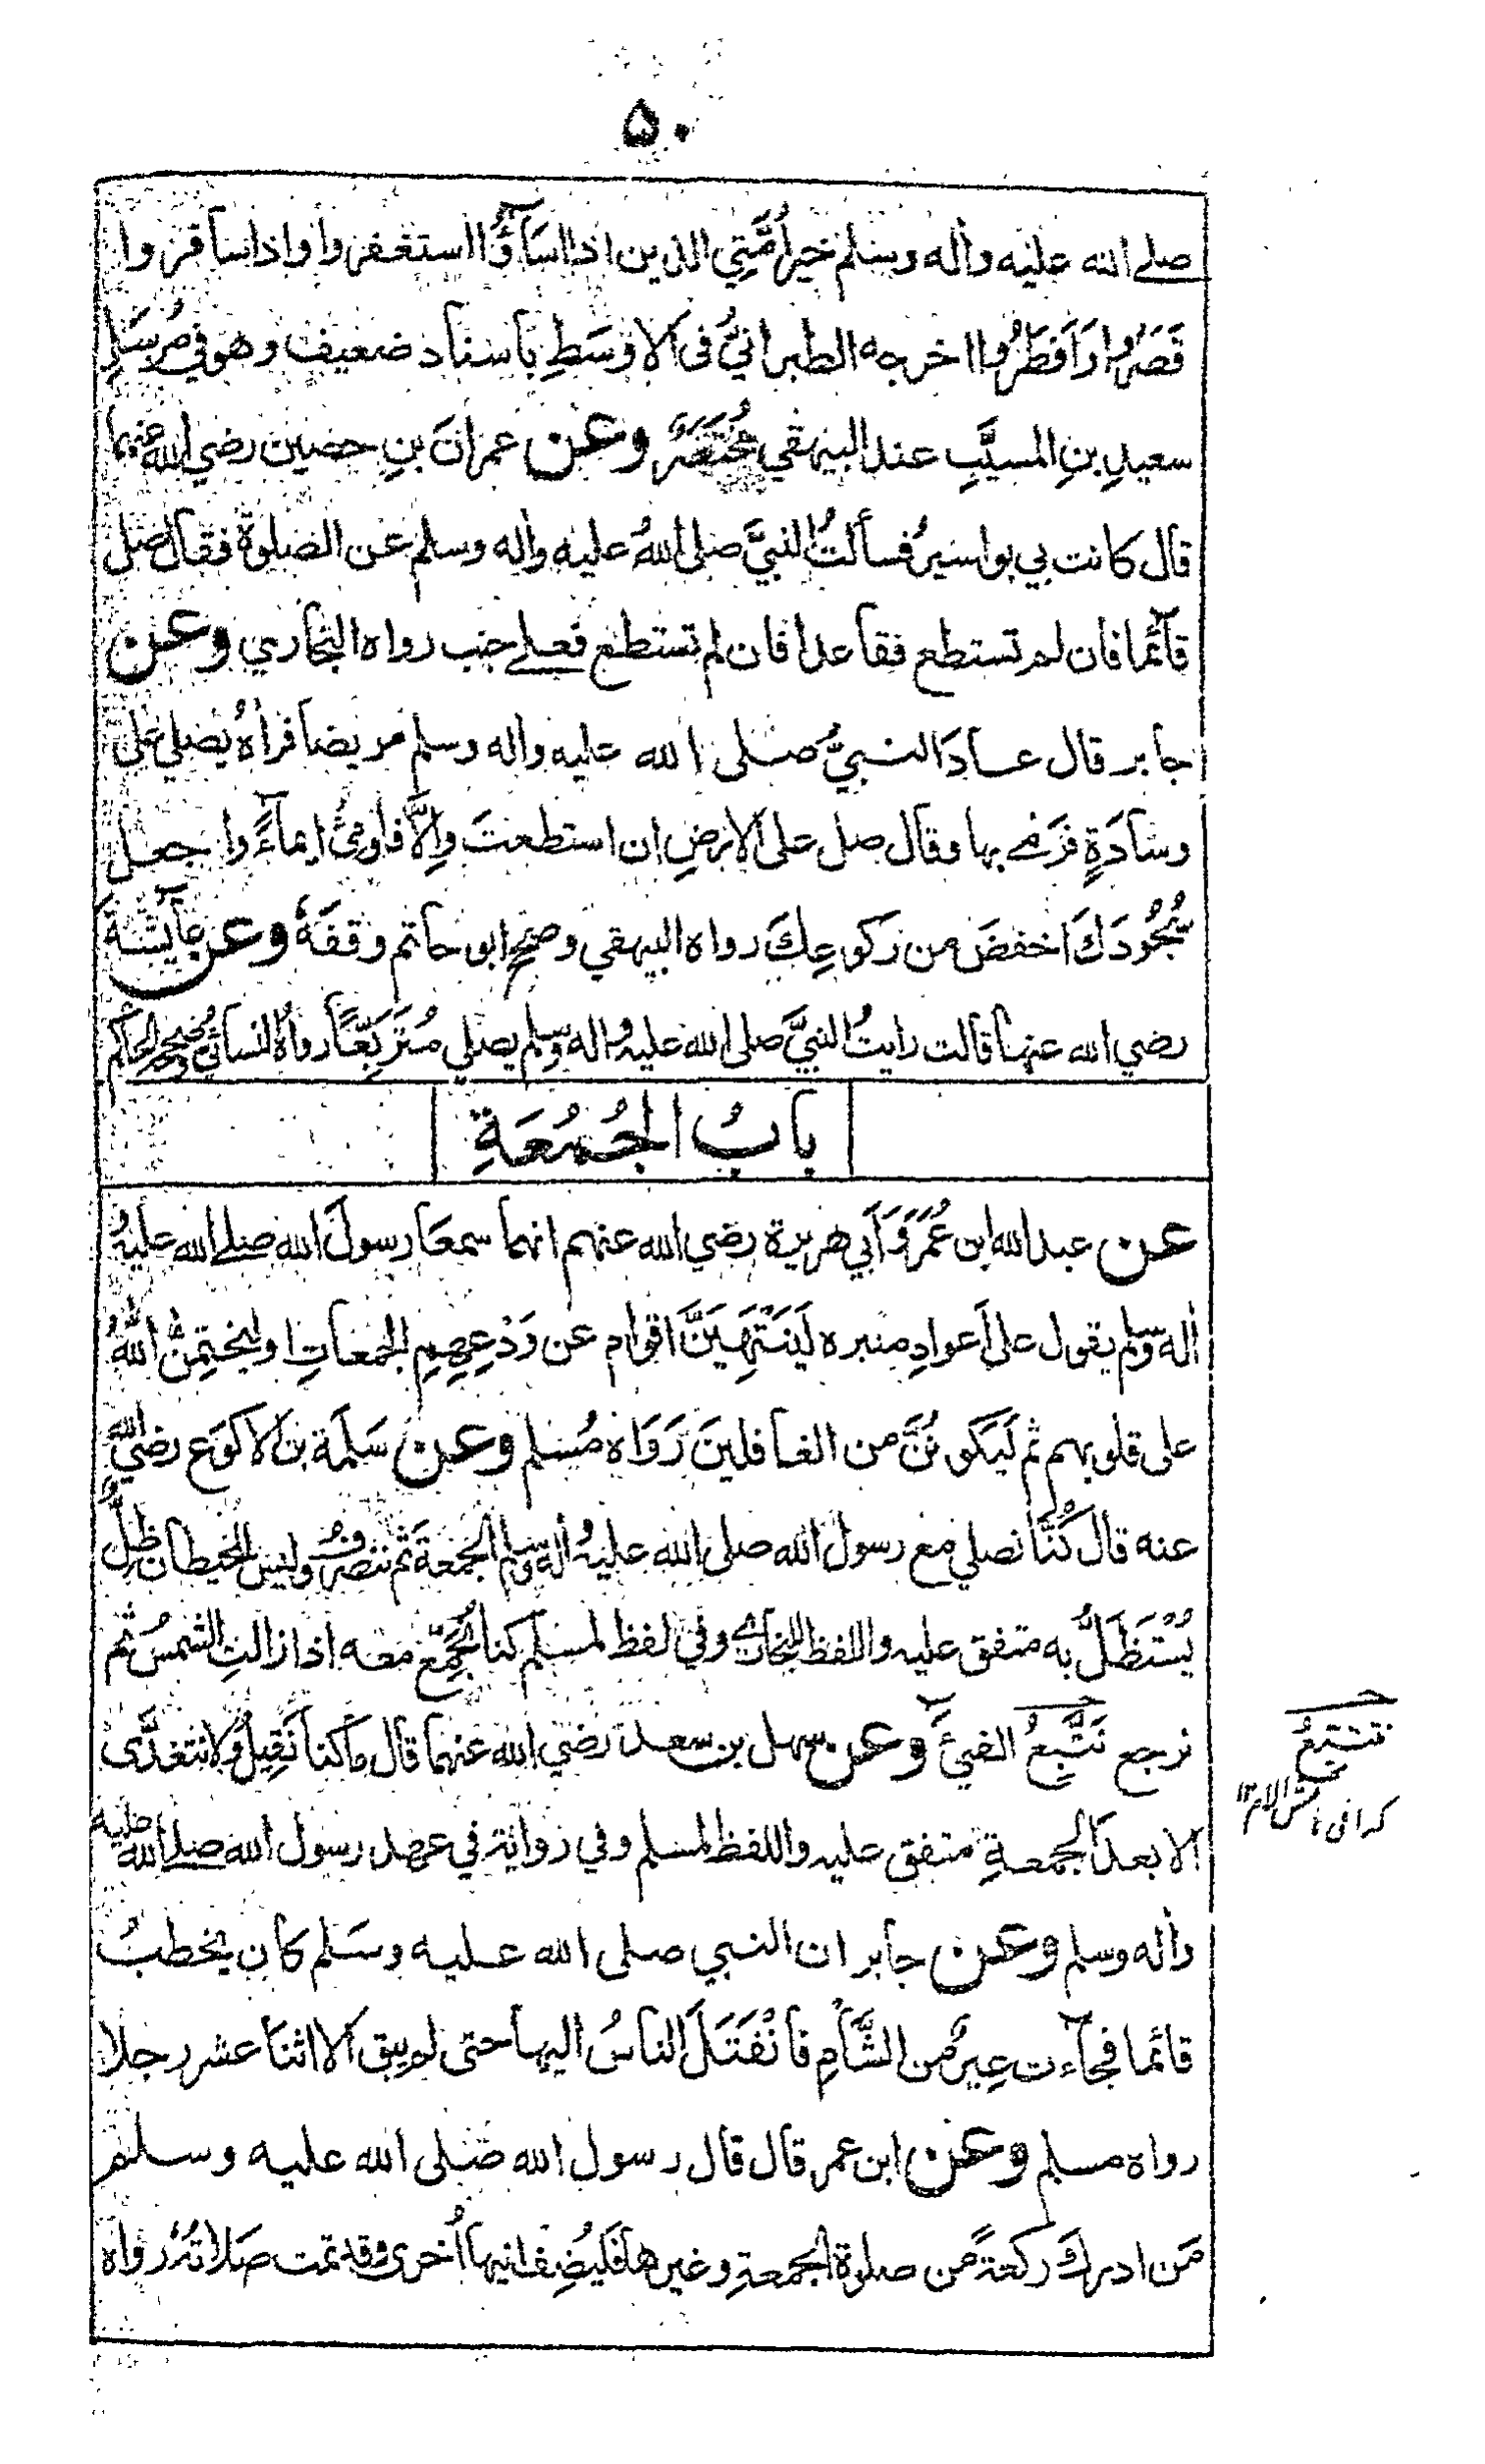 ۵۰
صلے الله عليه واله وسلم خير اُمَّتِي الذين اذا اسَآؤُا استغفروا واذا سافروا
قَصَرُوا وَاَفطَرُوا اخرجه الطبرانيُّ فى الاوْسَطِ باسناد ضعيف وهو في مُرسَلِ
سعيدِ بنِ المسيَّبِ عند البيهقي مُختَصَرً وعن عمرانَ بنِ حصين رضي الله عنهما
قال كانت بي بواسيرُ فسألتُ النبيَّ صلى اللهُ عليه واٰله وسلم عن الصلوة فقال صل
قآئما فان لم تستطع فقاعدا فان لم تستطع فعلے جنب رواه البخاري وعن
جابر قال عادَ النبيُّ صلى الله عليه واٰله وسلم مريضا فراٰهُ يصلي على
وسادَةٍ فرَمٰے بها وقال صل على الارضِ ان استطعتَ واِلَّا فاومِئْ ايمآءً واجعل
سُجُودَكَ اخفضَ من ركوعِكَ رواه البيهقي وصحح ابو حاتم وقفَهٗ وعن عآيشةَ
رضي الله عنها قالت رايتُ النبيَّ صلى الله عليه واٰله وسلم يصلي مُتَرَبِّعًا رواهُ النسائيُّ وصححه الحاكم
بابُ الجُمُعَةِ
عن عبد الله ابن عُمَرَ وَاَبي هريرة رضي الله عنهم انهما سمعَا رسولَ الله صلے الله عليهِ
اٰله وسلم يقول على اَعوادِ منبره لَيَنْتَهِيَنَّ اقوام عن وَدْعِهِمِ الجمعاتِ او ليختِمَنَّ اللّٰهُ
على قلوبهم ثم لَيَكونُنَّ من الغافلينَ رَوَاه مُسلم وعن سَلَمة بن الاكوَع رضي الله
عنه قال كُنَّا نصلي مع رسول الله صلى الله عليه واٰله وسلم الجمعةَ ثم ننصرفُ وليس للحيطان ظِلٌّ
يُسْتَظَلُّ به متفق عليه واللفظ للبخارے وفي لفظ لمسلم كنا نُجَمِّعُ معه اذا زالتِ الشمسُ ثم
نرجع نَتَّبِعُ الفيئَ وعن سهل بن سعد رضي الله عنهما قال ما كنا نَقِيلُ ولا نتغدَّى
الا بعدَ الجمعةِ متفق عليه واللفظ لمسلم وفي رواية في عهد رسول الله صلے الله عليه
واٰله وسلم وعن جابر ان النبي صلى الله عليه وسَلم كان يخطبُ
قائما فجآءت عِيرٌ من الشَّأمِ فانْفَتَلَ الناسُ اليها حتى لم يبق الا اثنا عشر رجلا
رواه مسلم وعن ابن عمر قال قال رسول الله صَلى الله عليه وسلم
مَن ادرك ركعةً من صلوة الجمعةِ وغيرها فليُضِف اليها اُخرى وقد تمت صَلاتُهٗ رواه
نتتبعُ